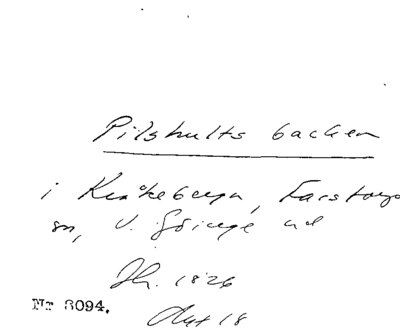 Pilshults backen
i Kråkeberga, Farstorps
sn, V. Göinge hd
Jh. 1826
Akt 18
Nr 8094.